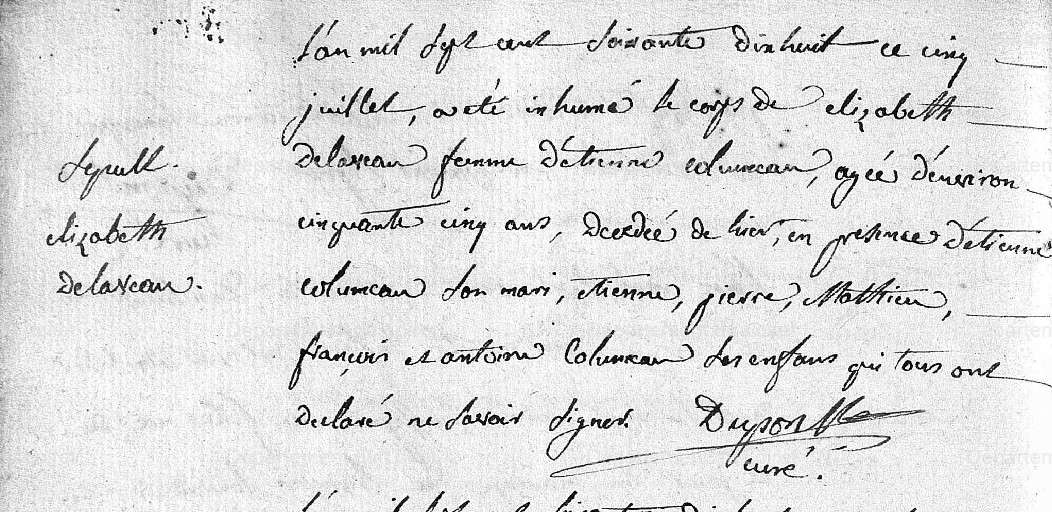 l'an mil sept cent soixante dix huit ce cinq
juillet, a eté inhumé le corps de elizabeth
delaveau femme d'étienne columeau, agée d'environ
cinquante cinq ans, decedée de hier, en presence d'étienne
columeau son mari, etienne, pierre, Mathieu,
françois et antoine Columeau ses enfans qui tous ont
declaré ne savoir signer.
curé.
sepult.
elizabeth
delaveau.